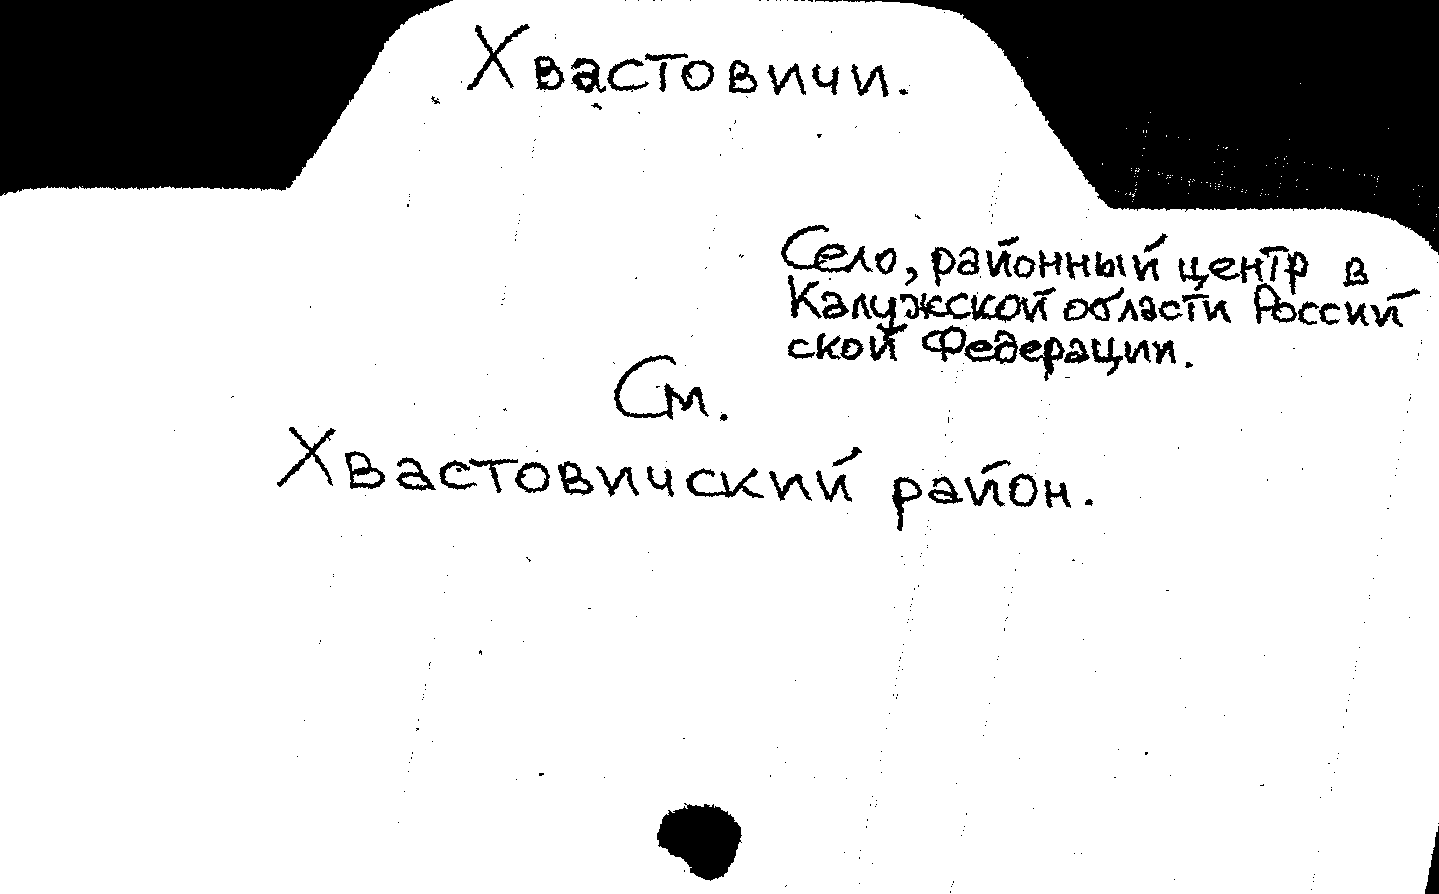 Хвастовичи.
Село, районный центр в
Калужской области Россий
ской Федерации.
См.
Хвастовичский район.